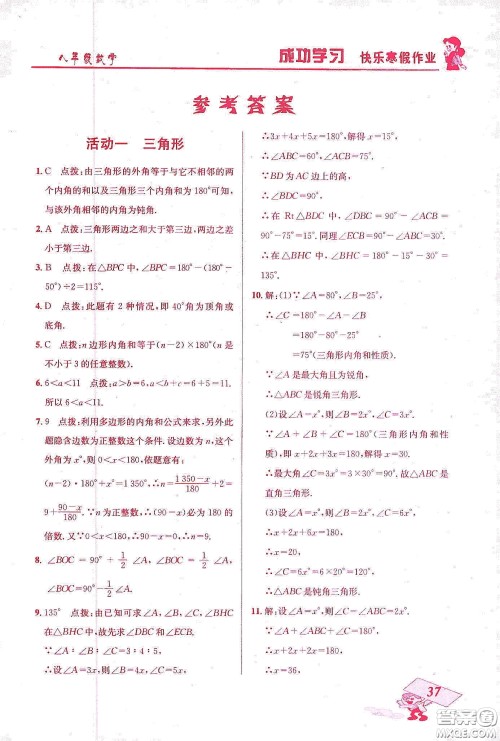 八年级数学
成功学习 快乐寒假作业
参考答案
活动一 三角形
1. C 点拨：由三角形的外角等于与它不相邻的两
个内角的和以及三角形三个内角和为180°可知，
与该外角相邻的内角为钝角.
2. A 点拨：三角形两边之和大于第三边，两边之差
小于第三边.
3. B 点拨：在△BPC中，∠BPC=180°-(180°-
50°)÷2.
4. D 点拨：此题有2种情况，即40°角为顶角或
底角.
5. C 点拨：n边形内角和等于(n-2)×180°(n是
不小于3的任意整数).
6. 6<a<11 点拨：a>b=6，a<b+c=6+5=11.
所以6<a<11.
7. 9 点拨：利用多边形的内角和公式来求.另外此
题隐含边数为正整数这个条件.设边数为n，这个
内角为x°，则0<x<180.依题意有：
(n-2)·180°+x°=1350°，n=(1350-x)/180+2
=9+(90-x)/180. ∵n为正整数，∴90-x必为180的
倍数.又∵0<x<180，∴n=9.
8. ∠BOC=90°+1/2∠A，∠BOC=90°-1/2∠A，
∠BOC=1/2∠A
9. 135° 点拨：由已知可求∠A、∠B、∠C，∠BHC
在△BHC中，故先求∠DBC和∠ECB.
∵∠A：∠B：∠C=3：4：5，
∴设∠A=3x，则∠B=4x，∠C=5x，
∴3x+4x+5x=180°，解得x=15°.
∴∠ABC=60°，∠ACB=75°.
∵BD为AC边上的高，
∴∠BDC=90°.
∴在Rt△BDC中，∠DBC=90°-∠ACB=
90°-75°=15°.同理∠ECB=90°-60°=30°.
∴在△BHC中，∠BHC=180°-15°-30°=
135°.
10. 解：(1)∵∠A=80°，∠B=25°，
∴∠C=180°-∠A-∠B
=180°-80°-25°
=75°(三角形内角和性质).
∵∠A是最大角且为锐角，
∴△ABC是锐角三角形.
(2)设∠A=x°，则∠B=2x°，∠C=3x°.
∵∠A+∠B+∠C=180°(三角形内角和性
质)，即x+2x+3x=180，解得x=30.
∴最大角∠C=3x°=3×30°=90°.故△ABC是
直角三角形.
(3)设∠A=x°，则∠B=2x°，∠C=6x°.
∴x+2x+6x=180.
∴x=20.
∴∠C=6x°=6×20°=120°.
∴△ABC是钝角三角形.
11. 解：设∠A=x，则∠C=∠ABC=2x.
∵∠A+∠ABC+∠C=180°，
∴x+2x+2x=180°，
∴x=36°，
37